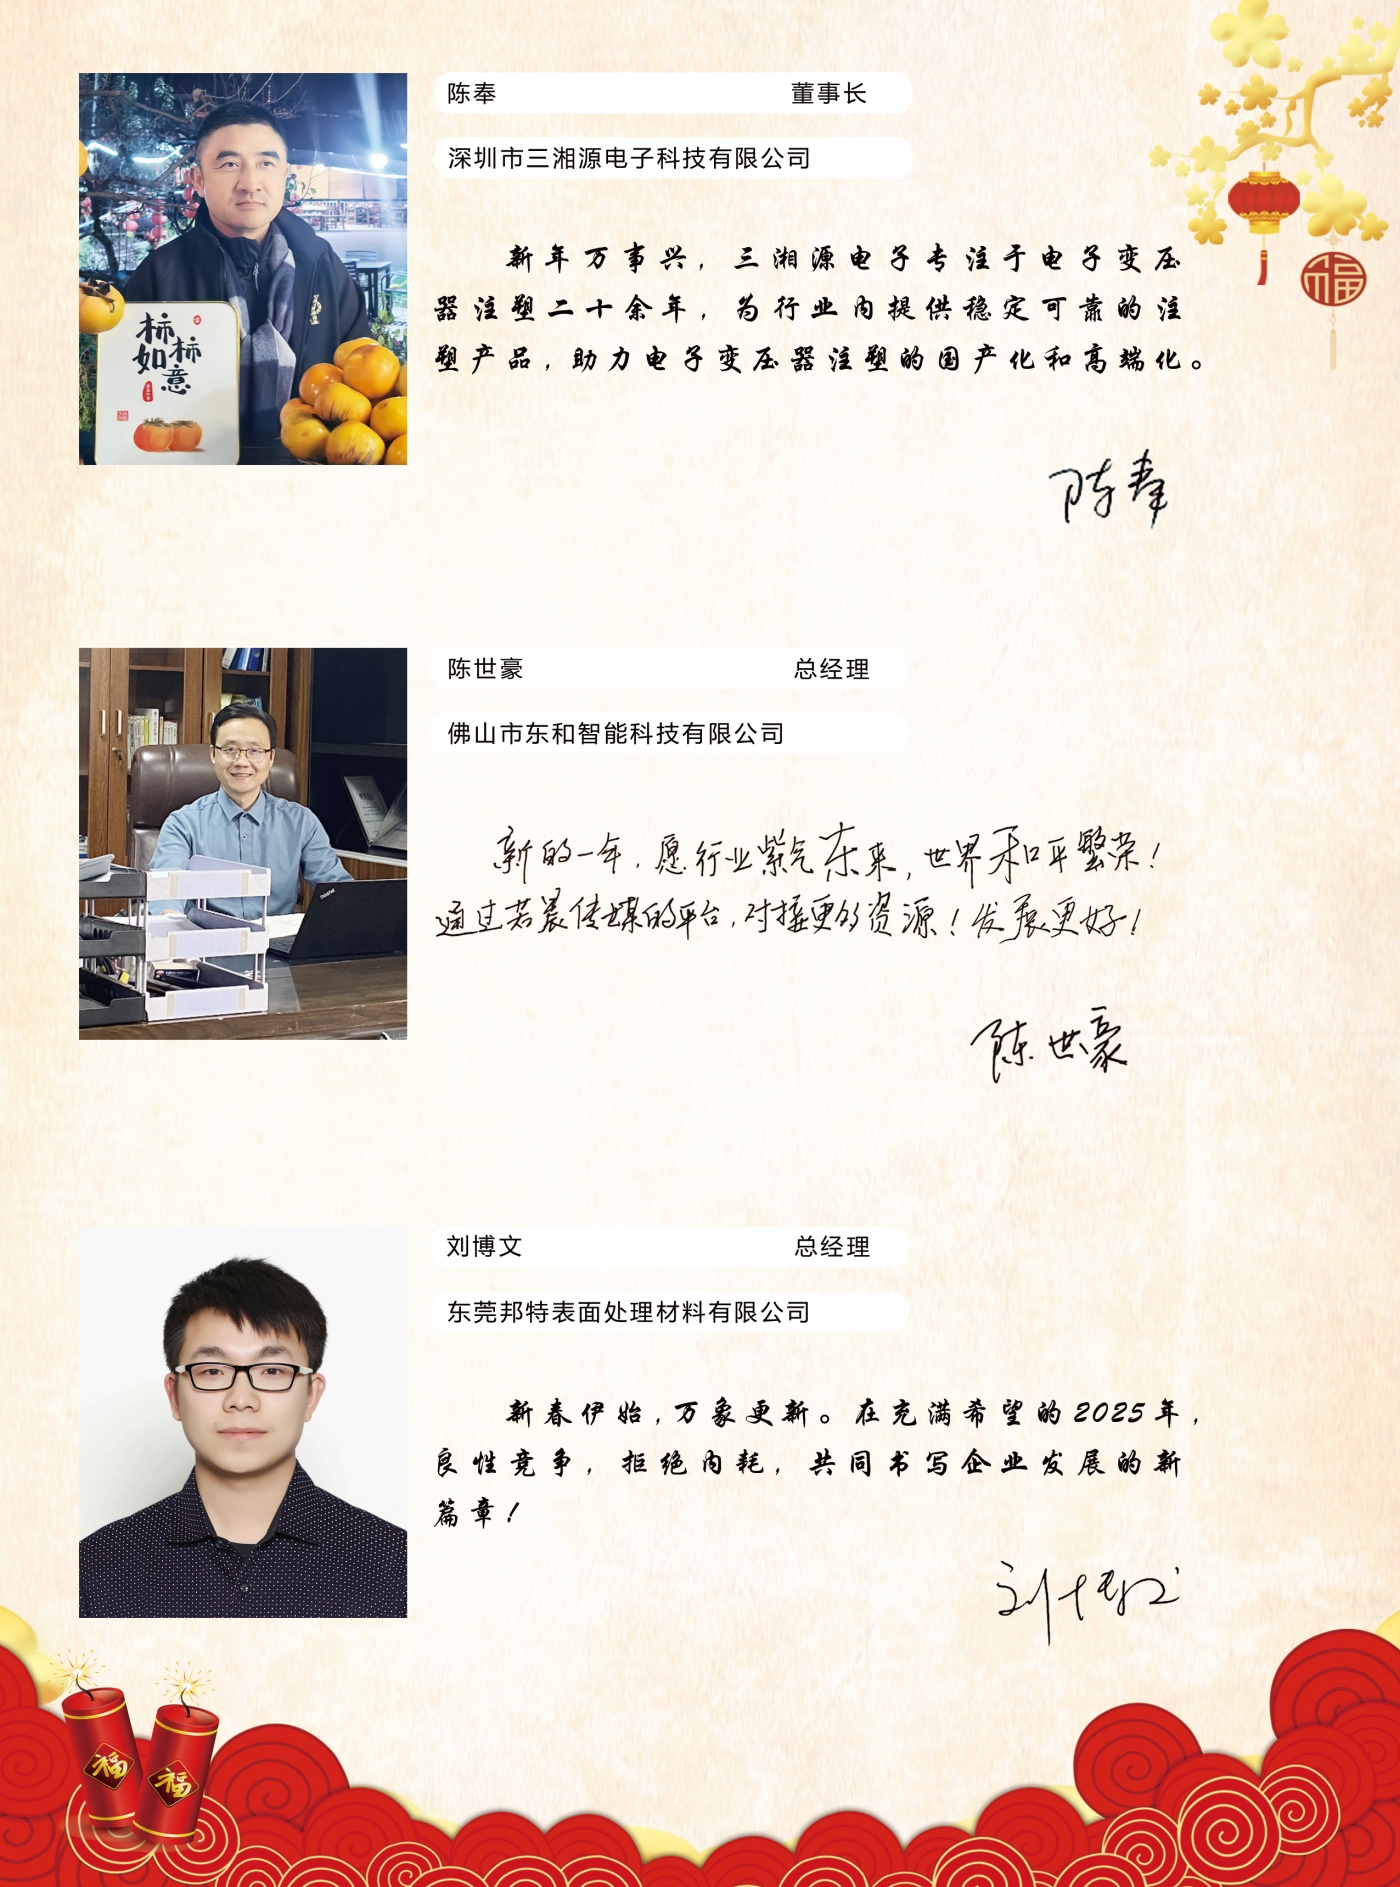 陈奉 董事长
深圳市三湘源电子科技有限公司
新年万事兴，三湘源电子专注于电子变压
器注塑二十余年，为行业内提供稳定可靠的注
塑产品，助力电子变压器注塑的国产化和高端化。
柿柿如意
陈奉
福
陈世豪 总经理
佛山市东和智能科技有限公司
新的一年，愿行业紫气东来，世界和平繁荣！
通过若晨传媒的平台，对接更多资源！发展更好！
陈世豪
刘博文 总经理
东莞邦特表面处理材料有限公司
新春伊始，万象更新。在充满希望的2025年，
良性竞争，拒绝内耗，共同书写企业发展的新
篇章！
刘博文
福
福